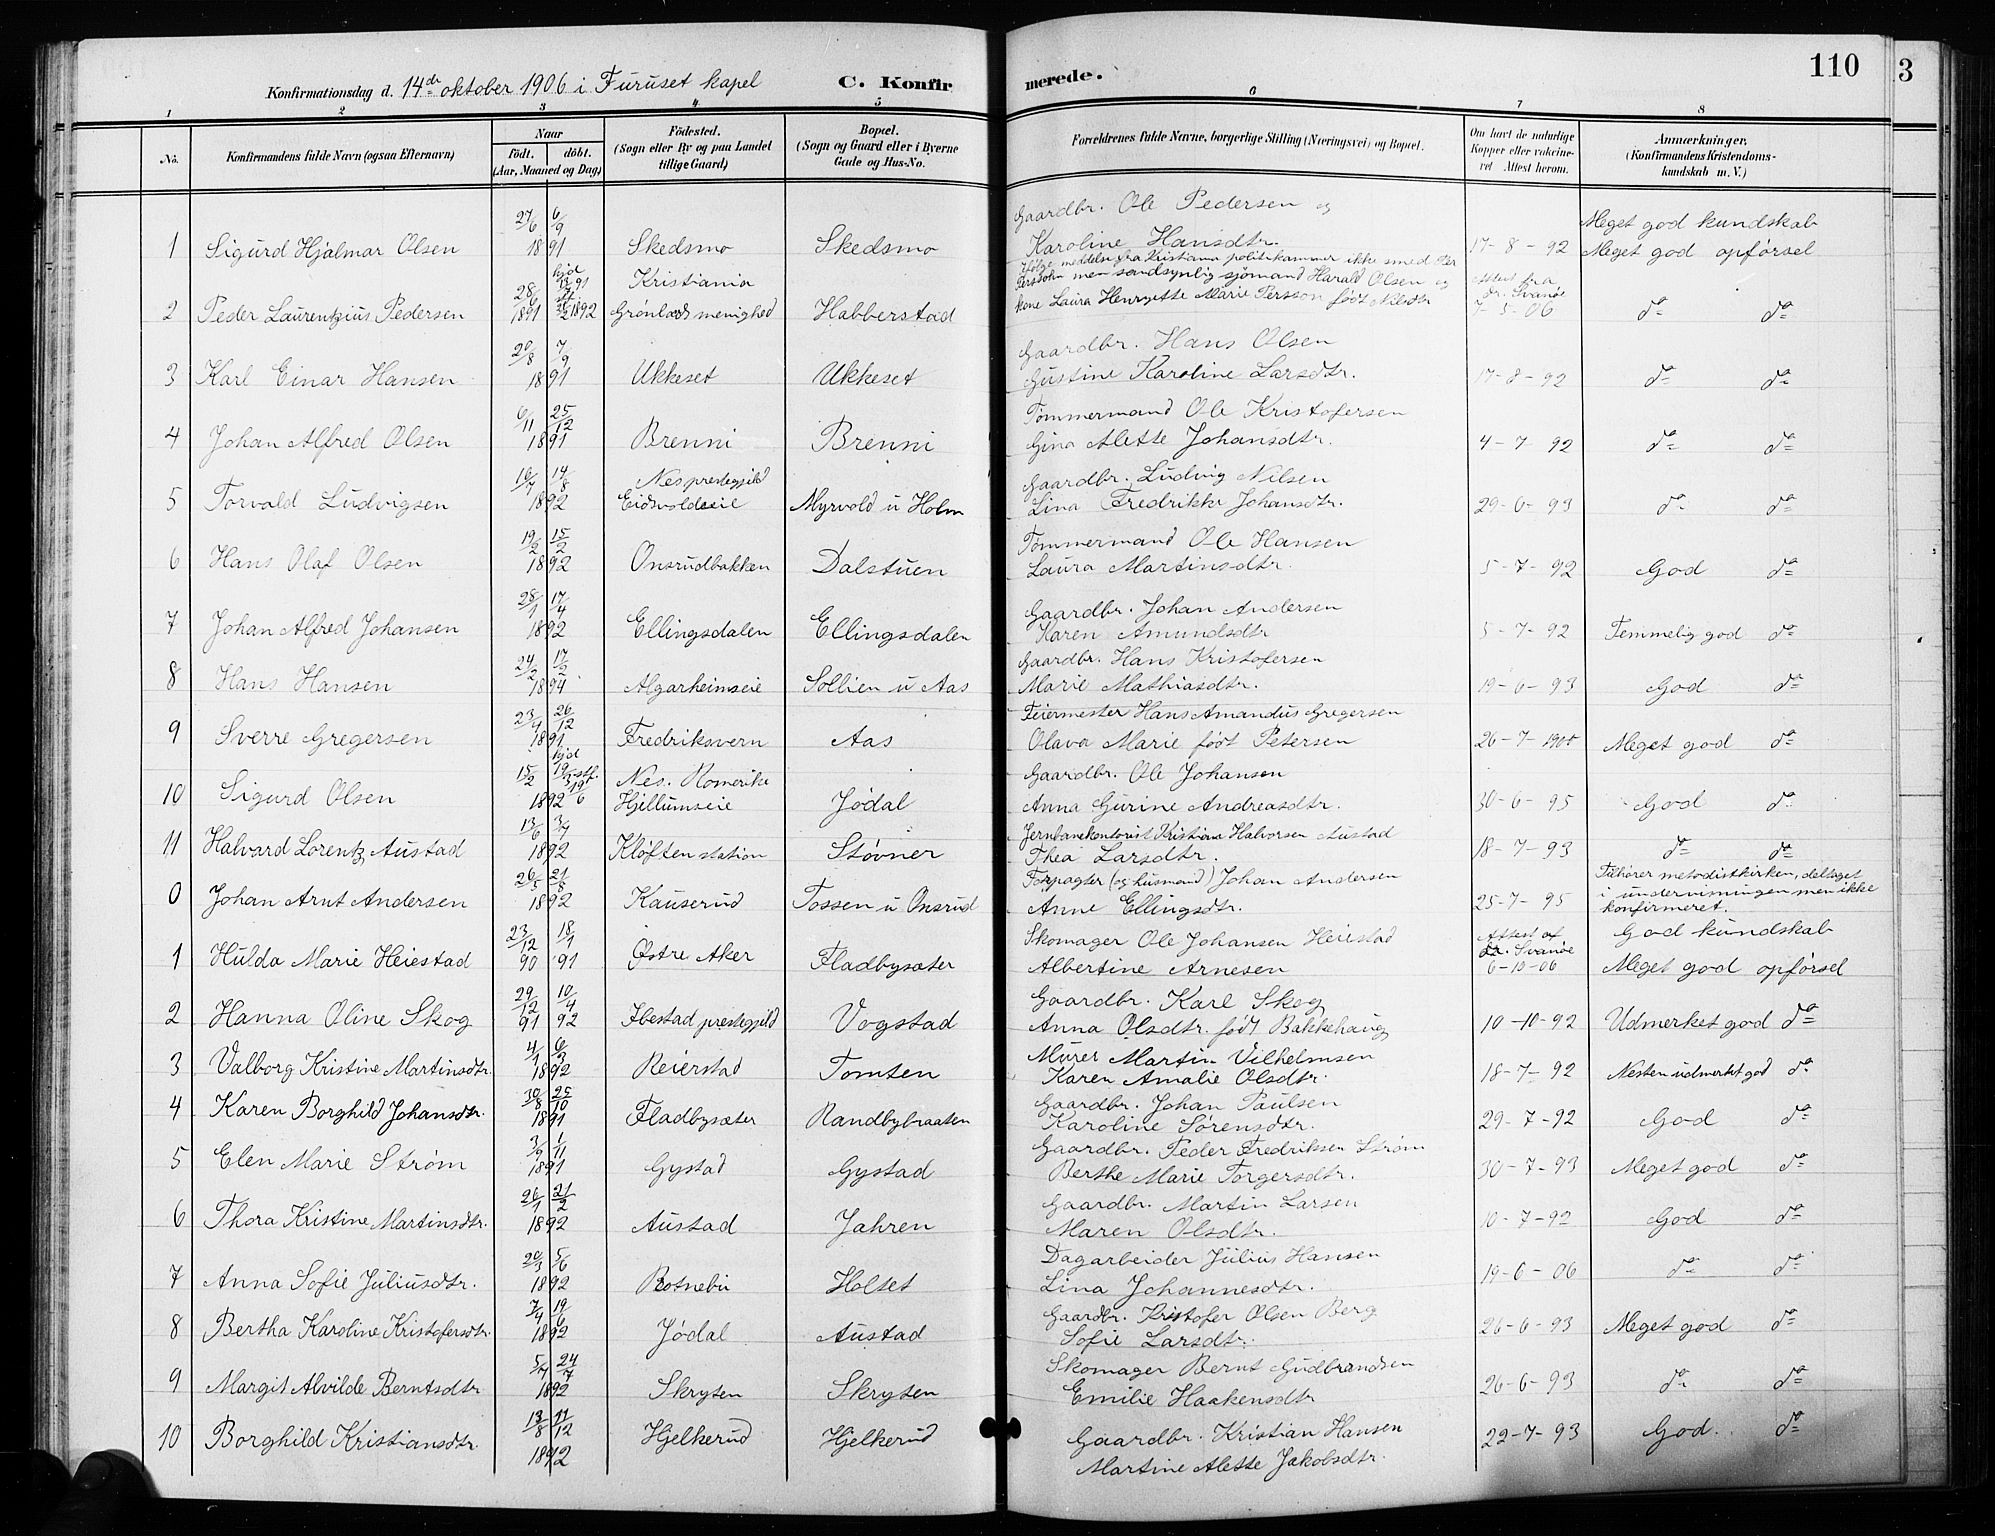 Konfirmationsdag d. 14de oktober 1906 i Furuset kapel C. Konfirmerede. 110 3
1 2 3 4 5 6 7 8
No. Konfirmandens fulde Navn (ogsaa Efternavn) Naar født. døbt. (Aar, Maaned og Dag) Fødested. (Sogn eller By og paa Landet tillige Gaard) Bopæl. (Sogn og Gaard eller i Byerne Gade og Hus-No. Forældrenes fulde Navne, borgerlige Stilling (Næringsvei) og Bopæl. Om havt de naturlige Kopper eller vakcineret Attest herom. Anmærkninger. (Konfirmandens Kristendomskundskab m. V.)
27/6 6/9 Gaardbr. Ole Pedersen og Meget god kundskab
1 Sigurd Hjalmar Olsen 1891 Skedsmo Skedsmo Karoline Hansdtr. 17-8-92 Meget god opførsel
Kristiania Ifølge meddelse fra Kristiania politikammer ikke smed Per
28/6 Persson men sandsynlig sjømand Harald Olsen og Attest fra dr. Svanøe
2 Peder Laurentzius Pedersen 1891 1892 Grønlands menighed Habberstad kone Laura Henryette Marie Persson født Nilsdtr 7-5-06 do do
20/8 7/9 Gaardbr. Hans Olsen
3 Karl Einar Hansen 1891 Ukkeset Ukkeset Gustine Karoline Larsdtr. 17-8-92 do do
6/11 25/12 Tømmermand Ole Kristofersen
4 Johan Alfred Olsen 1891 Brenni Brenni Gina Alette Johansdtr. 4-7-92 do do
16/7 14/8 Nes prestegjeld Gaardbr. Ludvig Nilsen
5 Torvald Ludvigsen 1892 Eidsvoldseie Myrvold u Holm Lina Fredrikke Johansdtr. 29-6-93 do do
19/2 15/2 Tømmermand Ole Hansen
6 Hans Olaf Olsen 1892 Onsrudbakken Dalstuen Laura Martinsdtr. 5-7-92 God do
28/1 17/4 Gaardbr. Johan Andersen
7 Johan Alfred Johansen 1892 Ellingsdalen Ellingsdalen Karen Amundsdtr 5-7-92 Temmelig god do
24/2 17/2 Gaardbr. Hans Kristofersen
8 Hans Hansen Algarheimseie Sollien u Aas Marie Mathiasdtr. 19-6-93 God do
23/4 26/12 Feiermester Hans Amandus Gregersen
9 Sverre Gregersen 1891 Fredriksvern Aas Olava Marie født Petersen 26-7-1900 Meget god do
15/2 hjd. stf. 19/6 Nes. Romerike Gaardbr. Ole Johansen
10 Sigurd Olsen 1892 Hjellumseie Jødal Anna Gurine Andreasdtr. 30-6-95 God do
13/6 3/7 Jernbanekontorist Kristian Halvorsen Austad
11 Halvard Lorentz Austad 1892 Kløften station Støvner Thea Larsdtr. 18-7-93 do do
26/5 21/8 Forpagter (og husmand) Johan Andersen Tilhører metodistkirken, deltaget
0 Johan Arnt Andersen 1892 Kauserud Fossen u Onsrud Anne Ellingsdtr. 25-7-95 i undervisningen men ikke konfirmeret.
23/12 18/1 Skomager Ole Johansen Heiestad Attest af dr. Svanøe God kundskab
1 Hulda Marie Heiestad 90 91 Østre Aker Fladbysæter Albertine Arnesen 6-10-06 Meget god opførsel
29/12 10/4 Gaardbr. Karl Skog
2 Hanna Oline Skog 91 92 Ibestad prestegjeld Vogstad Anna Olsdtr. født Bakkehaug 10-10-92 Udmerket god do
4/1 6/3 Murer Martin Vilhelmsen
3 Valborg Kristine Martinsdtr. 1892 Reierstad Tomten Karen Amalie Olsdtr. 18-7-92 Nesten udmerket god do
30/8 25/10 Gaardbr. Johan Paulsen
4 Karen Borghild Johansdtr. 1891 Fladbysæter Randbybraaten Karoline Sørensdtr. 29-7-92 God do
3/9 1/11 Gaardbr. Peder Fredriksen Strøm
5 Elen Marie Strøm 1891 Gystad Gystad Berthe Marie Torgersdtr. 30-7-93 Meget god do
26/1 21/2 Gaardbr. Martin Larsen
6 Thora Kristine Martinsdtr. 1892 Austad Jahren Maren Olsdtr. 10-7-92 God do
20/3 5/6 Dagarbeider Julius Hansen
7 Anna Sofie Juliusdtr. 1892 Botnebu Holset Lina Johannesdtr. 19-6-06 do do
7/4 19/6 Gaardbr. Kristofer Olsen Berg
8 Bertha Karoline Kristofersdtr. 1892 Jødal Austad Sofie Larsdtr. 26-6-93 Meget god do
5/7 24/7 Skomager Bernt Gudbrandsen
9 Margit Alvilde Berntsdtr 1892 Skrysen Skrysen Emilie Haakensdtr 26-6-93 do do
13/8 11/12 Gaardbr. Kristian Hansen
10 Borghild Kristiansdtr. 1892 Hjelkerud Hjelkerud Martine Alette Jakobsdtr. 22-7-93 God. do